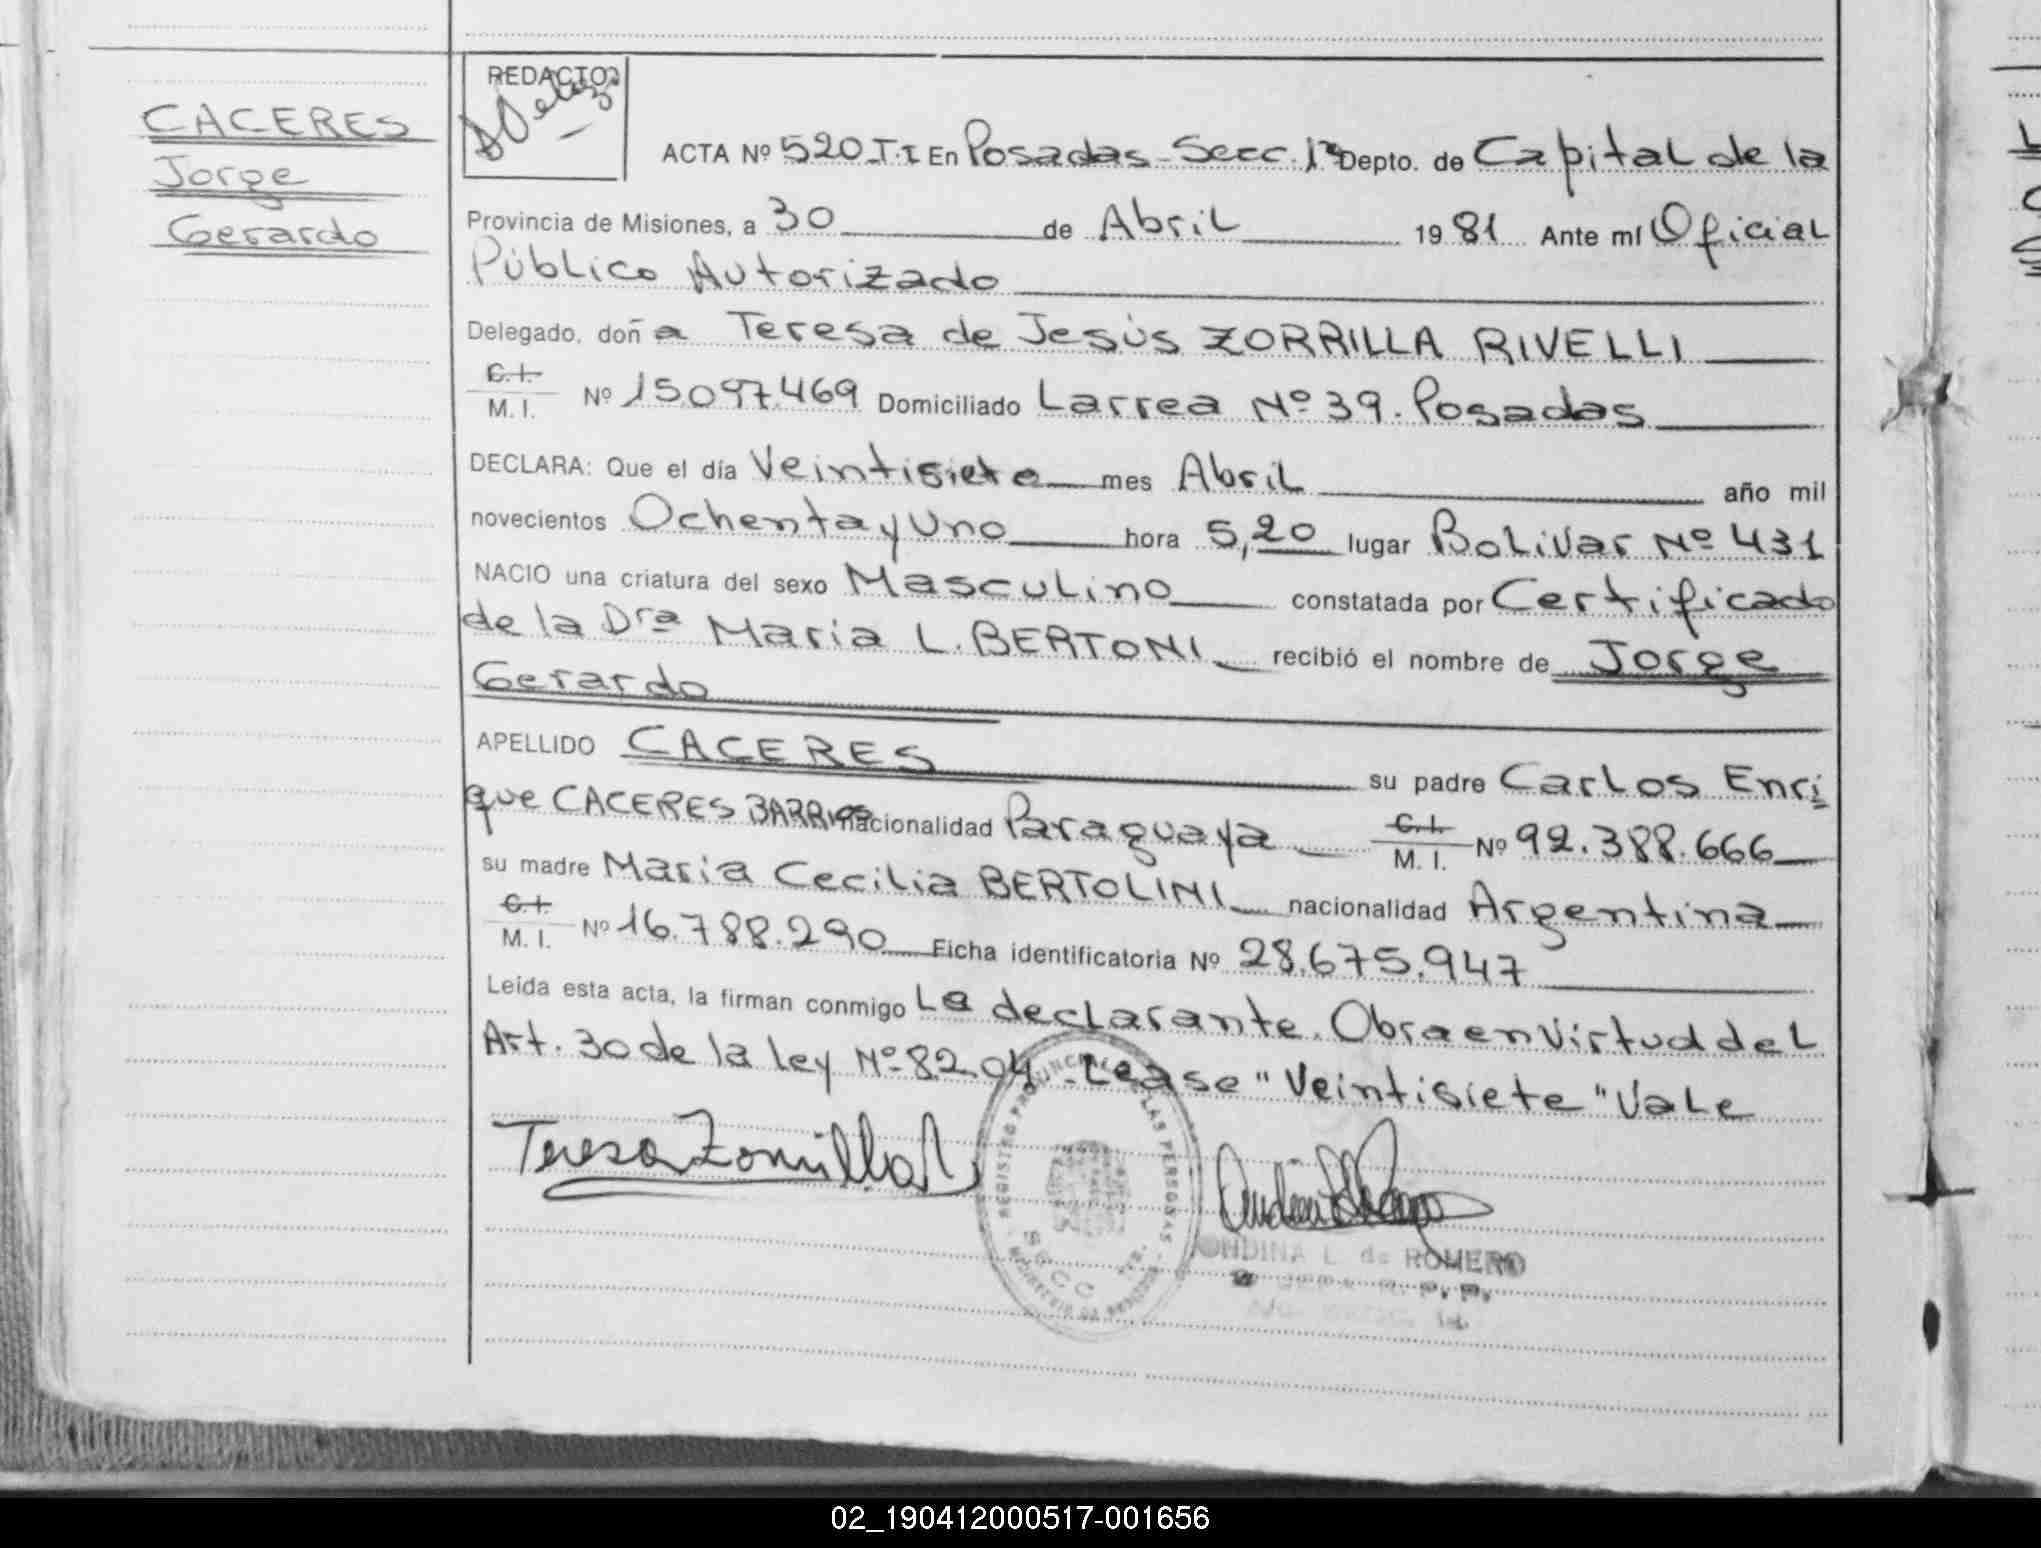 CACERES
Jorge
Gerardo
REDACTOR
ACTA Nº 520 T.I En Posadas - Secc. 1ª Depto. de Capital de la
Provincia de Misiones, a 30 de Abril 1981 Ante mí Oficial
Público Autorizado
Delegado, doña Teresa de Jesús ZORRILLA RIVELLI
C.I.
M. I. Nº 15.097.469 Domiciliado Larrea Nº 39. Posadas
DECLARA: Que el día Veintisiete mes Abril año mil
novecientos Ochenta y Uno hora 5,20 lugar Bolivar Nº 431
NACIO una criatura del sexo Masculino constatada por Certificado
de la Drª Maria L. BERTONI recibió el nombre de Jorge
Gerardo
APELLIDO CACERES su padre Carlos Enri
que CACERES BARRIOS nacionalidad Paraguaya C.I. M. I. Nº 92.388.666
su madre Maria Cecilia BERTOLINI nacionalidad Argentina
C.I.
M. I. Nº 16.788.290 Ficha identificatoria Nº 28.675.947
Leída esta acta, la firman conmigo La declarante. Obra en Virtud del
Art. 30 de la ley Nº 82.04 - Lease "Veintisiete" Vale
Teresa Zorrilla R
REGISTRO PROVINCIAL DE LAS PERSONAS
ONDINA L. de ROMERO
02_190412000517-001656